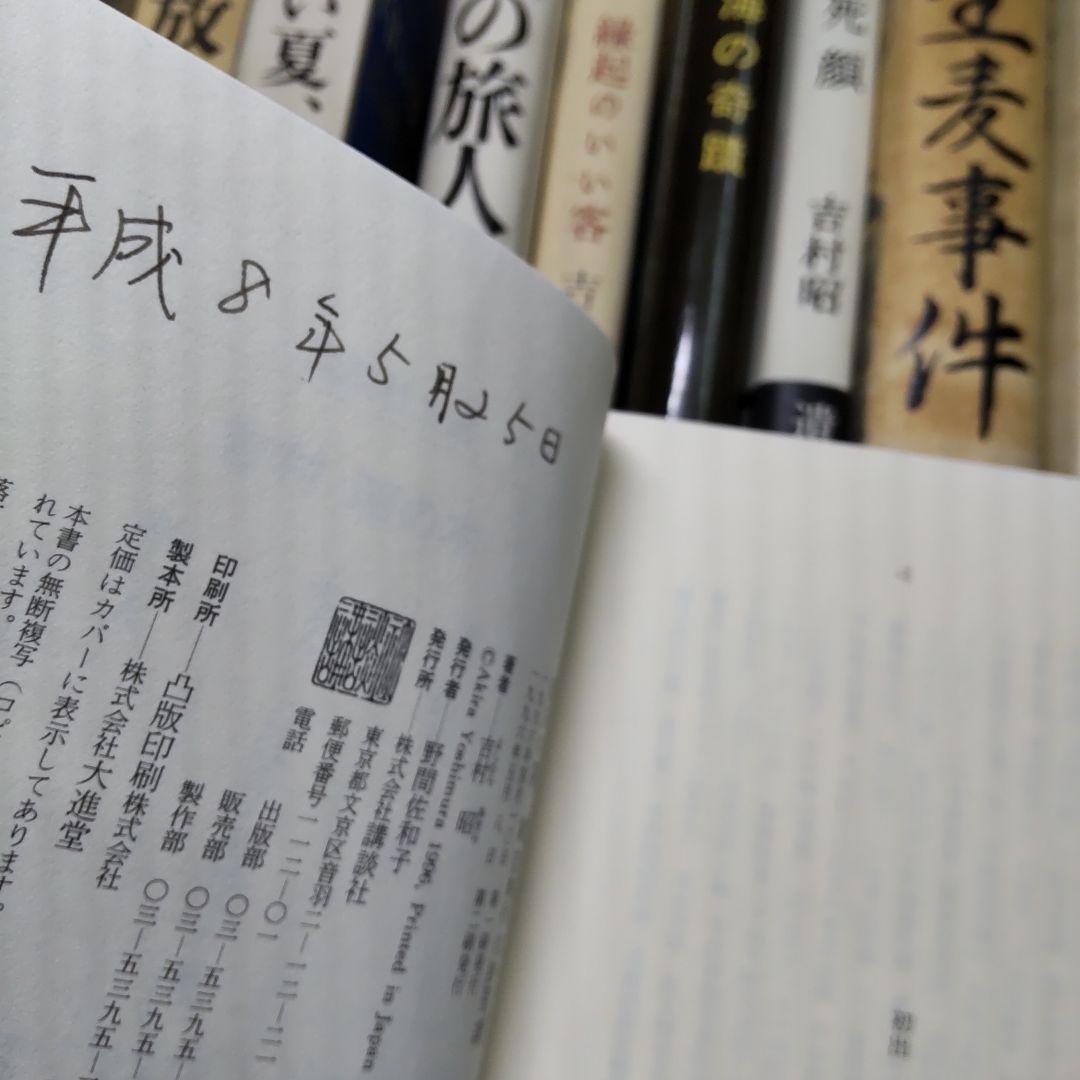 放
い夏、
の旅人
縁起のいい客 吉
海の奇蹟
死顔 吉村昭
遺
生麦事件
平成8年5月25日
著者
吉村 昭
©Akira Yoshimura 1996, Printed in Japan
発行者——野間佐和子
発行所——株式会社講談社
東京都文京区音羽二—一二—二一
郵便番号一一二—〇一
電話
出版部 〇三—五三九五—
販売部 〇三—五三九五—
製作部 〇三—五三九五—
印刷所——凸版印刷株式会社
製本所——株式会社大進堂
定価はカバーに表示してあります。
本書の無断複写(コピ
れています。
初出